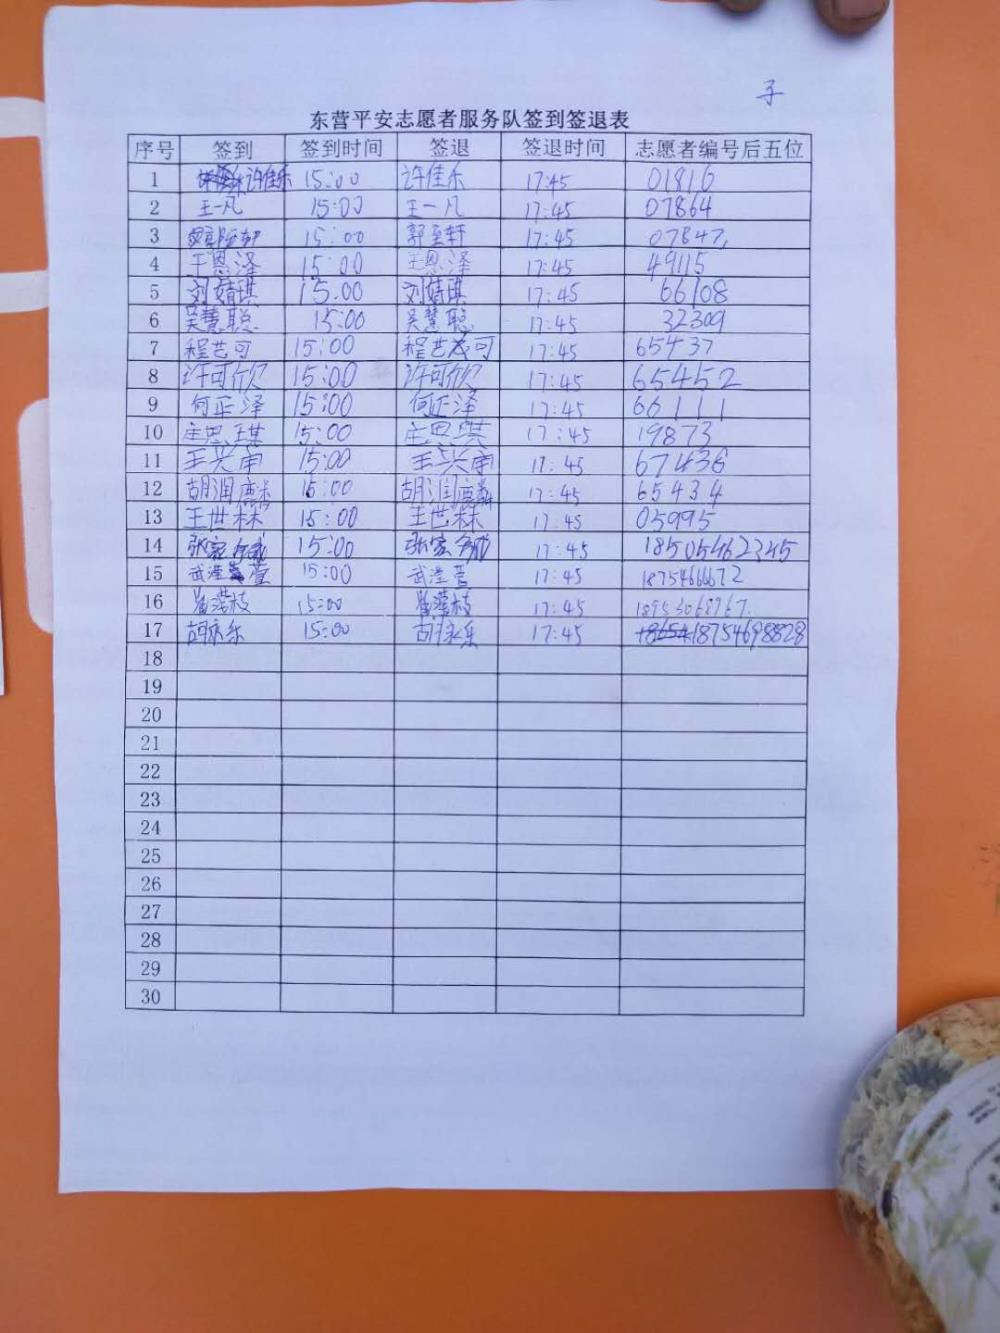 子
东营平安志愿者服务队签到签退表
序号 签到 签到时间 签退 签退时间 志愿者编号后五位
1 许佳乐 15:00 许佳乐 17:45 01816
2 王一凡 15:00 王一凡 17:45 07864
3 15:00 郭至轩 17:45 07847
4 王恩泽 15:00 王恩泽 17:45 49115
5 刘婧琪 15.00 刘婧琪 17:45 66108
6 吴慧聪 15:00 吴慧聪 17:45 32309
7 程艺可 15:00 程艺可 17:45 65437
8 许可欣 15:00 许可欣 17:45 65452
9 何正泽 15:00 何正泽 17:45 66111
10 庄思琪 15:00 庄思琪 17:45 19873
11 15:00 17:45 67436
12 胡润麟 15:00 胡润麟 17:45 65434
13 王世林 15:00 王世林 17:45 05995
14 张家 15:00 张家 17:45 18505462345
15 武滢萱 15:00 武滢萱 17:45 18754666672
16 15:00 17:45
17 胡永乐 15:00 胡永乐 17:45 18754698828
18
19
20
21
22
23
24
25
26
27
28
29
30